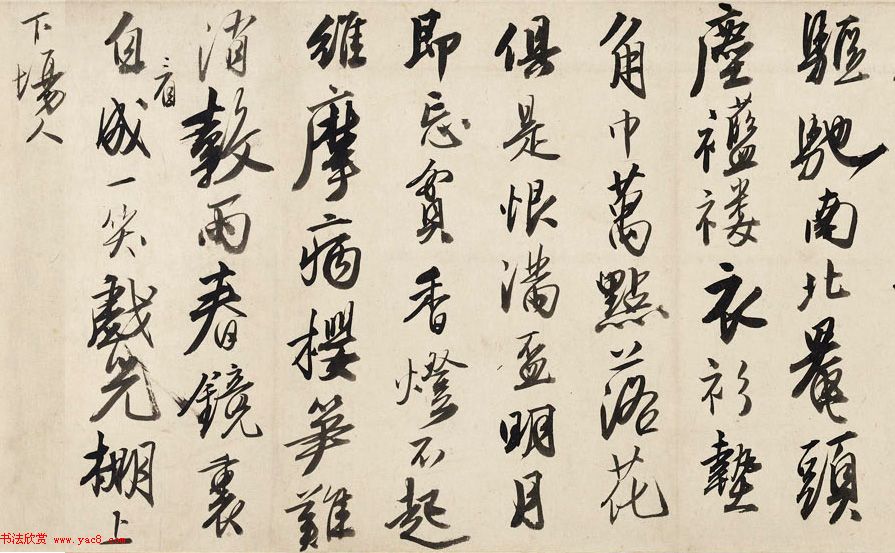 驅馳南北罨頭
塵襤褸衣衫墊
角巾萬點落花
俱是恨滿盃明月
即忘貧香燈不起
維摩病櫻笋難
消穀雨春鏡裏
自看成一笑戲棚上
下場人
书法欣赏 www.yac8.com